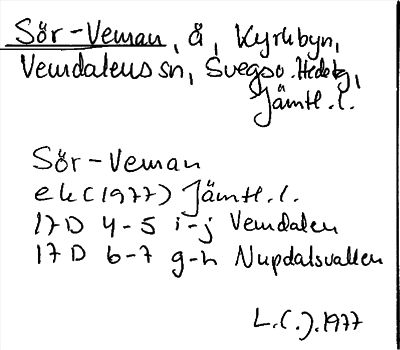 Sör-Veman, å, Kyrkbyn,
Vemdalens sn, Svegs o. Hede tg,
Jämtl. l.
Sör-Veman
ek (1977) Jämtl. l.
17D 4-5 i-j Vemdalen
17D 6-7 g-h Nupdalsvallen
L.( ). 1977